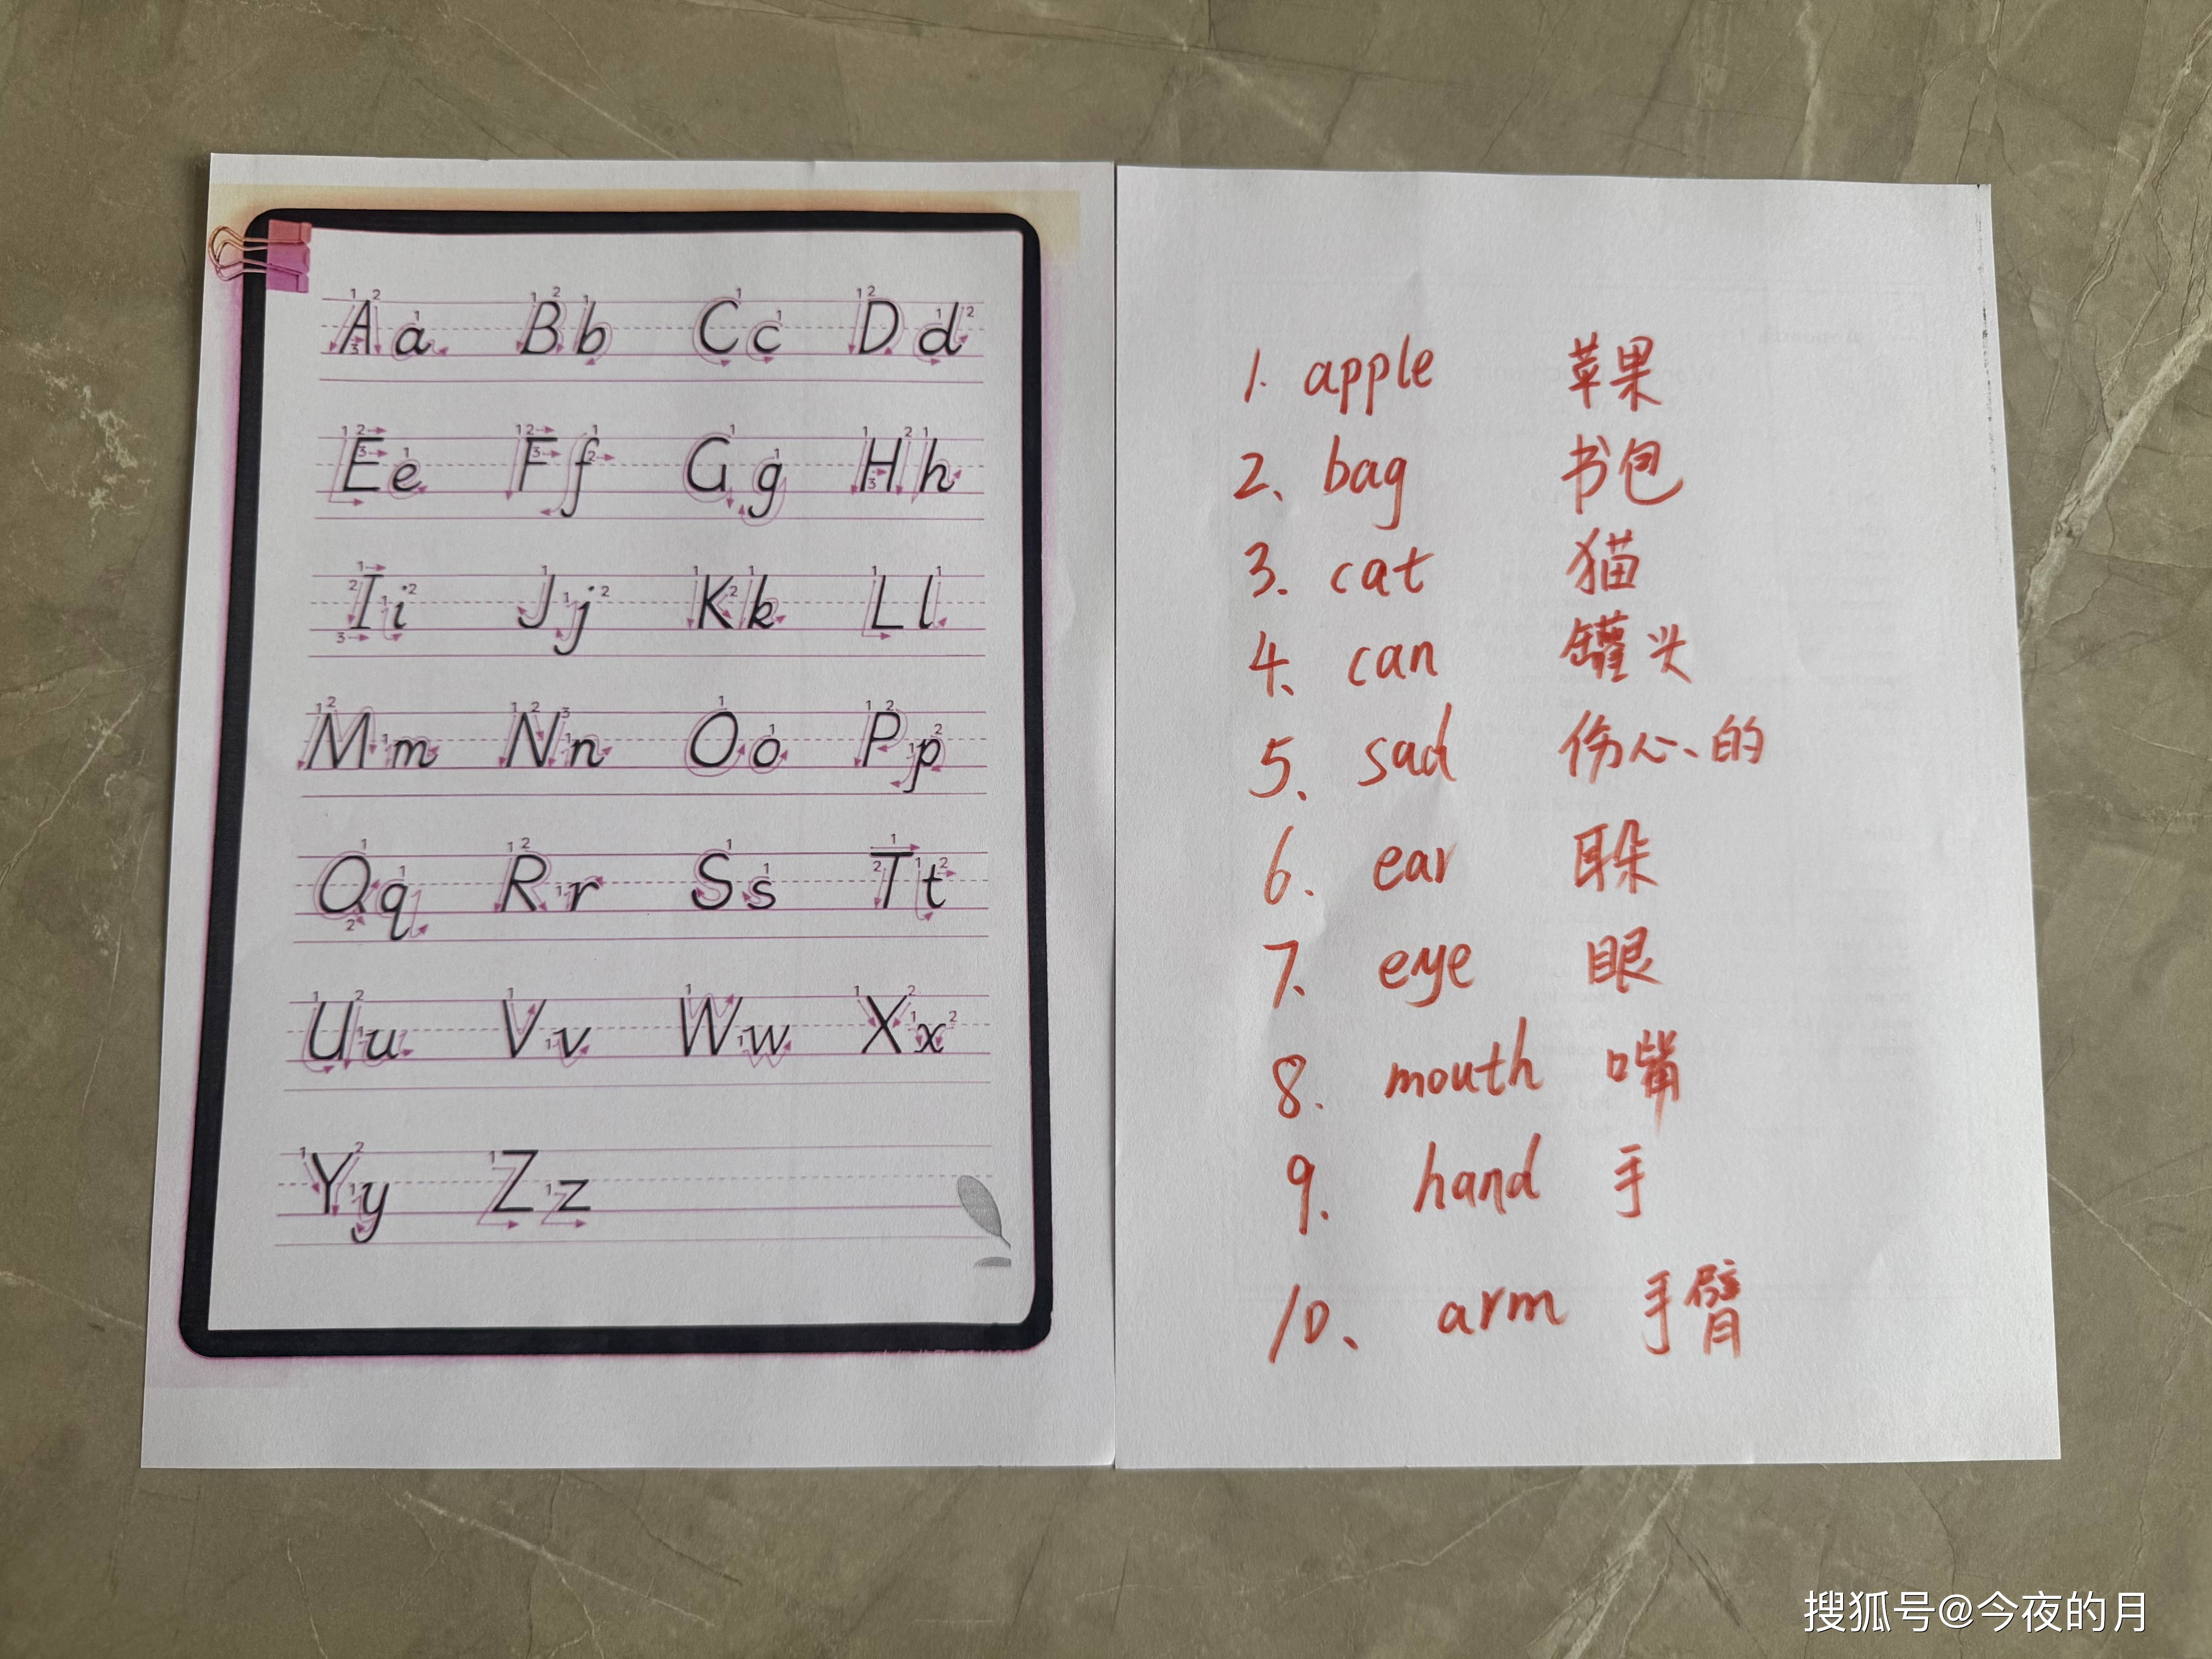 Aa Bb Cc Dd
Ee Ff Gg Hh
Ii Jj Kk Ll
Mm Nn Oo Pp
Qq Rr Ss Tt
Uu Vv Ww Xx
Yy Zz
1. apple 苹果
2、bag 书包
3. cat 猫
4、can 罐头
5、sad 伤心、的
6. ear 耳朵
7、eye 眼
8. mouth 嘴
9. hand 手
10、arm 手臂
搜狐号@今夜的月